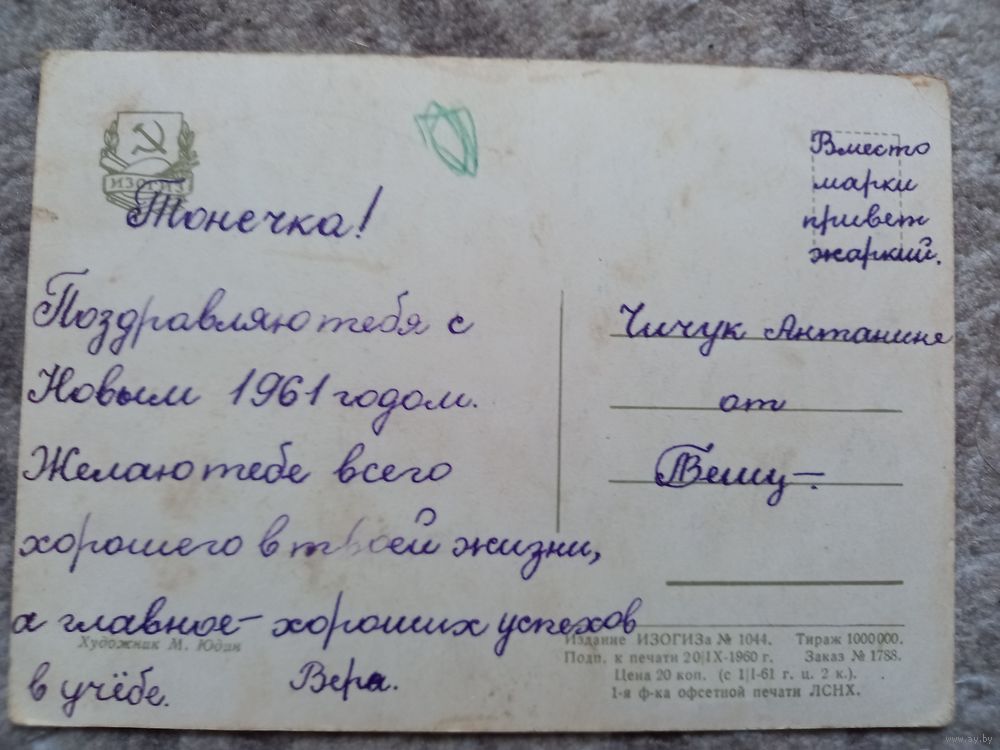 ИЗОГИЗ
Тонечка!
Поздравляю тебя с
Новым 1961 годом.
Желаю тебе всего
хорошего в твоей жизни,
а главное – хороших успехов
в учёбе. Вера.
Вместо
марки
привет
жаркий.
Чичук Антанине
от
Художник М. Юдин
Издание ИЗОГИЗа № 1044. Тираж 1000000.
Подп. к печати 20/IX-1960 г. Заказ № 1788.
Цена 20 коп. (с 1/I-61 г. ц. 2 к.).
1-я ф-ка офсетной печати ЛСНХ.
www.ay.by